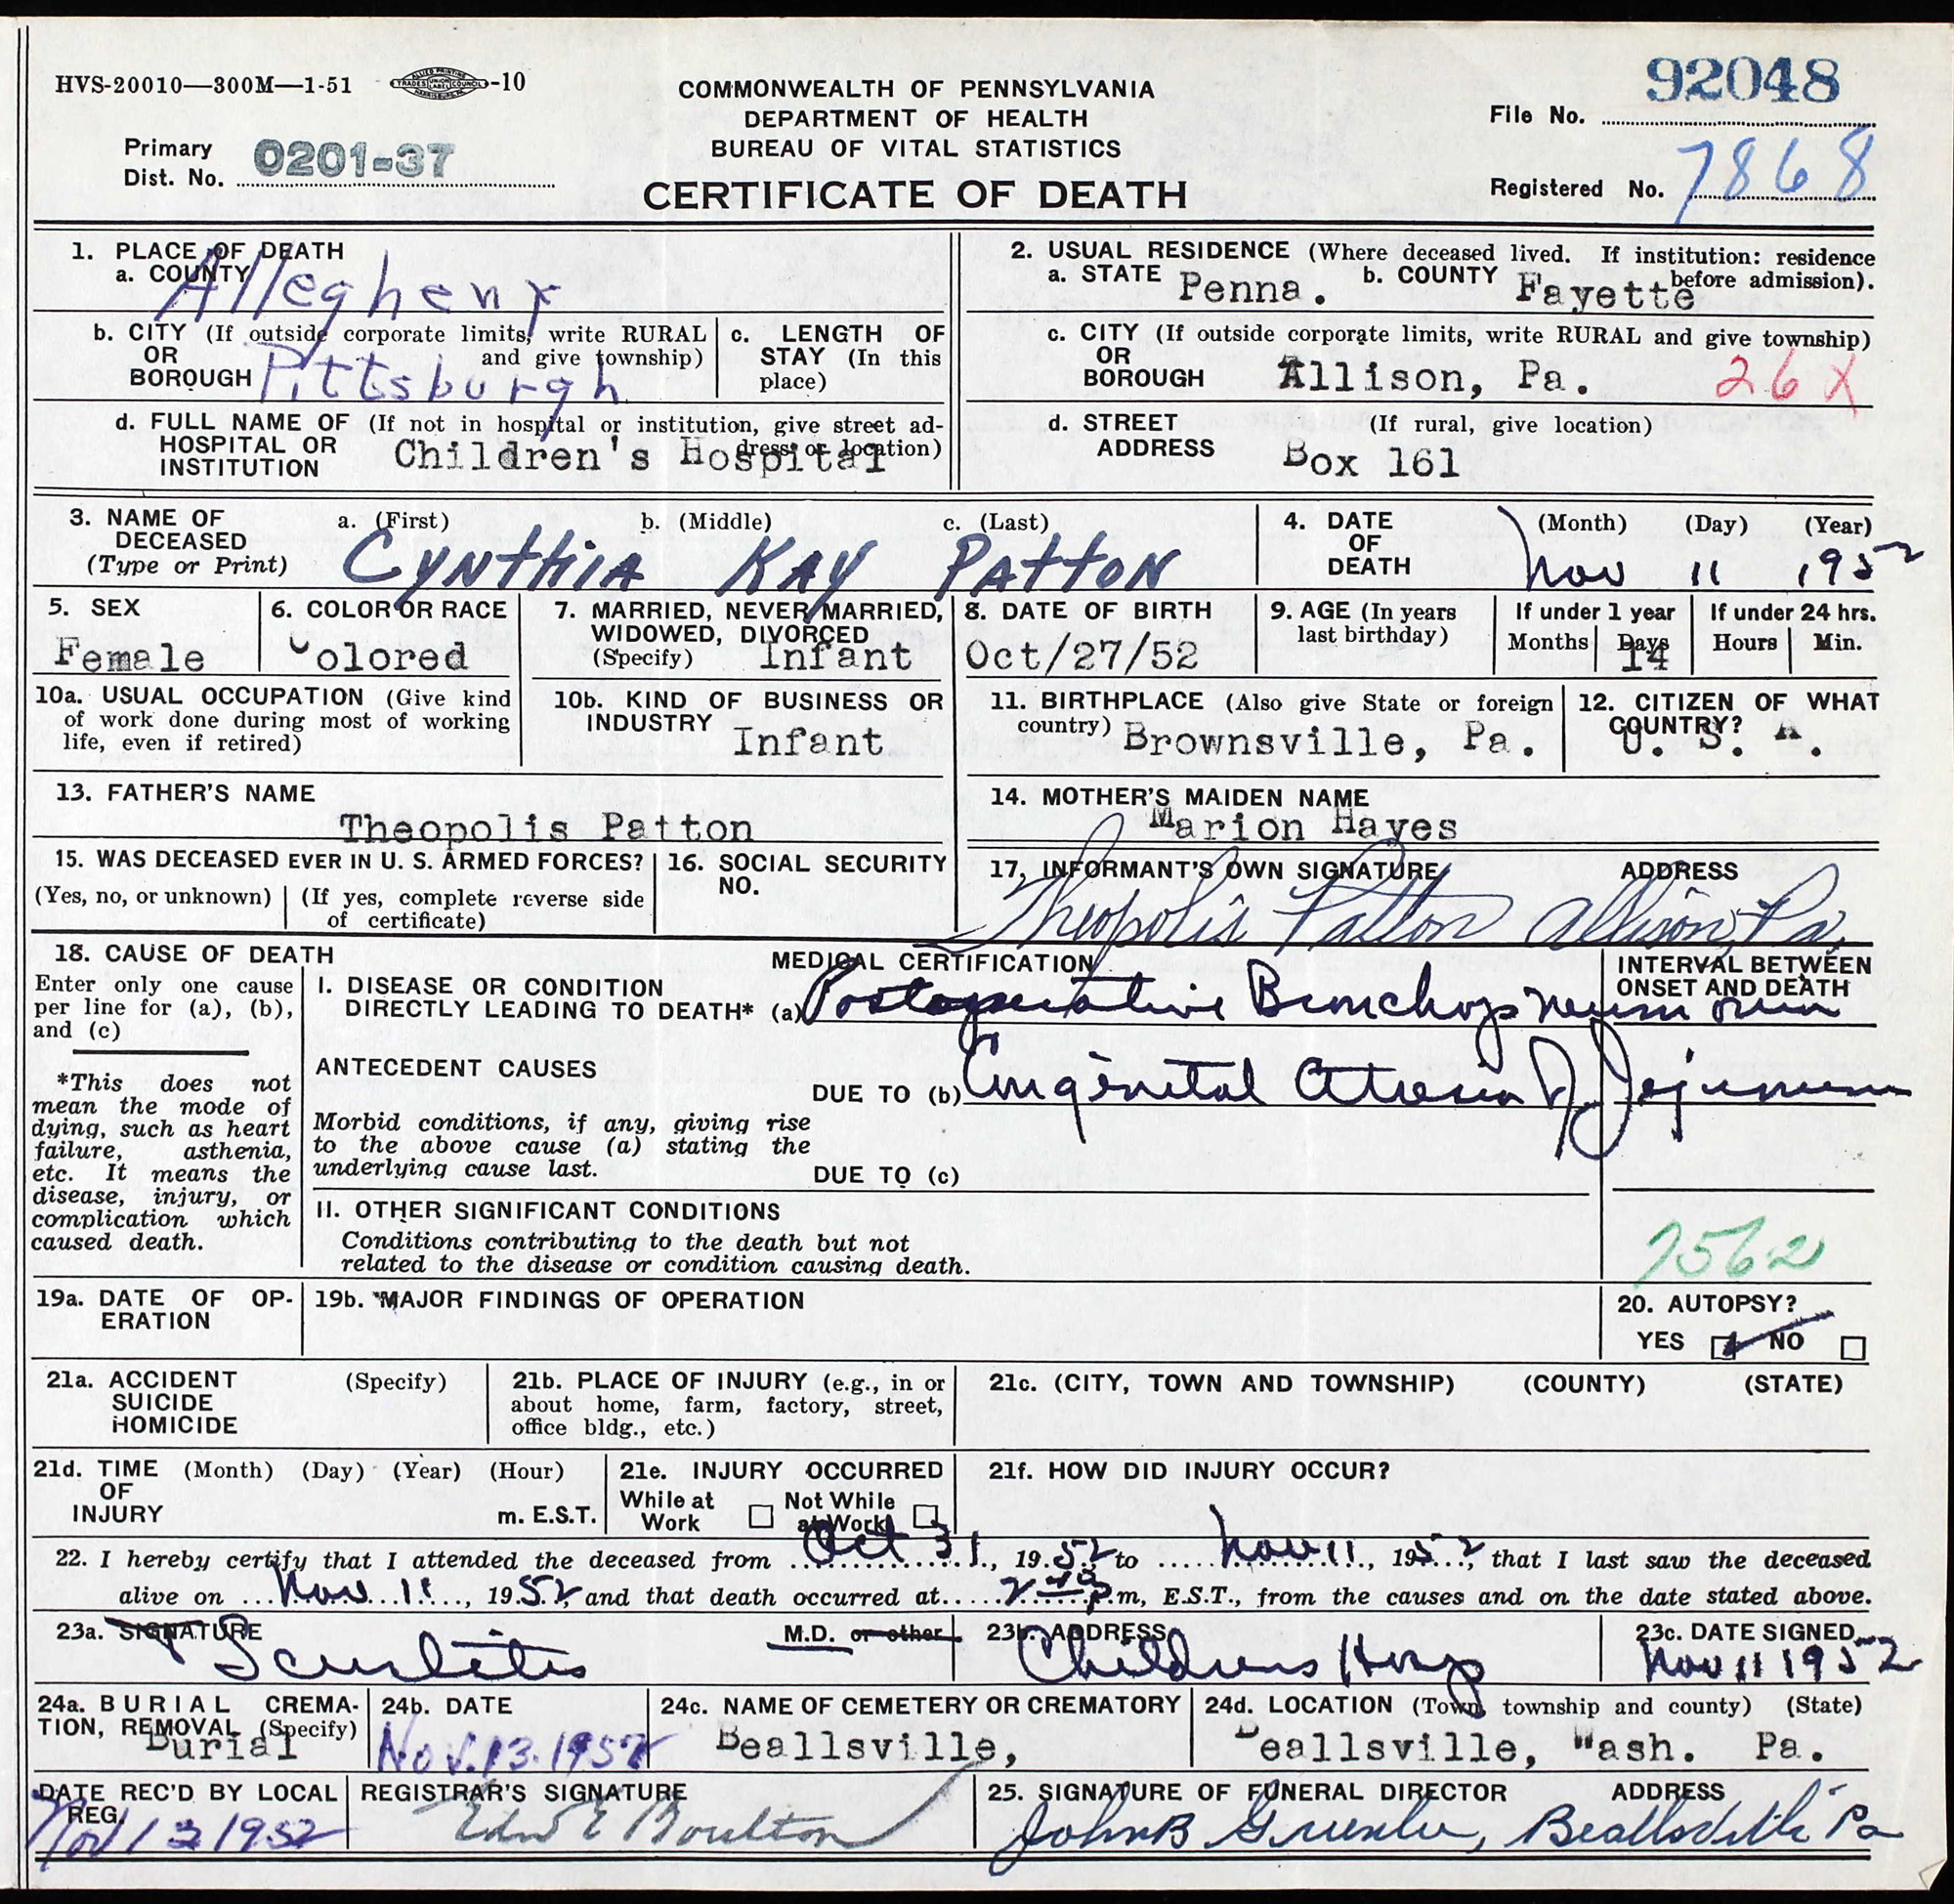 HVS-20010—300M—1-51 -10
COMMONWEALTH OF PENNSYLVANIA
DEPARTMENT OF HEALTH
BUREAU OF VITAL STATISTICS
CERTIFICATE OF DEATH
Primary
Dist. No. 0201-37
92048
File No.
Registered No. 7868
1. PLACE OF DEATH
a. COUNTY Allegheny
b. CITY (If outside corporate limits, write RURAL
OR and give township)
BOROUGH Pittsburgh
c. LENGTH OF
STAY (In this
place)
d. FULL NAME OF (If not in hospital or institution, give street ad-
HOSPITAL OR dress or location)
INSTITUTION Children's Hospital
2. USUAL RESIDENCE (Where deceased lived. If institution: residence
before admission).
a. STATE Penna. b. COUNTY Fayette
c. CITY (If outside corporate limits, write RURAL and give township)
OR
BOROUGH Allison, Pa. 26X
d. STREET (If rural, give location)
ADDRESS Box 161
3. NAME OF a. (First) b. (Middle) c. (Last)
DECEASED
(Type or Print) CYNTHIA KAY PATTON
4. DATE (Month) (Day) (Year)
OF
DEATH Nov 11 1952
5. SEX
Female
6. COLOR OR RACE
Colored
7. MARRIED, NEVER MARRIED,
WIDOWED, DIVORCED
(Specify) Infant
8. DATE OF BIRTH
Oct/27/52
9. AGE (In years
last birthday)
If under 1 year
Months Days
14
If under 24 hrs.
Hours Min.
10a. USUAL OCCUPATION (Give kind
of work done during most of working
life, even if retired)
10b. KIND OF BUSINESS OR
INDUSTRY
Infant
11. BIRTHPLACE (Also give State or foreign
country) Brownsville, Pa.
12. CITIZEN OF WHAT
COUNTRY?
U. S. A.
13. FATHER'S NAME
Theopolis Patton
14. MOTHER'S MAIDEN NAME
Marion Hayes
15. WAS DECEASED EVER IN U. S. ARMED FORCES?
(Yes, no, or unknown) (If yes, complete reverse side
of certificate)
16. SOCIAL SECURITY
NO.
17. INFORMANT'S OWN SIGNATURE ADDRESS
Theopolis Patton Allison, Pa.
18. CAUSE OF DEATH
Enter only one cause
per line for (a), (b),
and (c)
*This does not
mean the mode of
dying, such as heart
failure, asthenia,
etc. It means the
disease, injury, or
complication which
caused death.
MEDICAL CERTIFICATION
INTERVAL BETWEEN
ONSET AND DEATH
I. DISEASE OR CONDITION
DIRECTLY LEADING TO DEATH* (a) Postoperative Bronchopneumonia
ANTECEDENT CAUSES
DUE TO (b) Congenital Atresia of Jejunum
Morbid conditions, if any, giving rise
to the above cause (a) stating the
underlying cause last.
DUE TO (c)
II. OTHER SIGNIFICANT CONDITIONS
Conditions contributing to the death but not
related to the disease or condition causing death.
7562
19a. DATE OF OP-
ERATION
19b. MAJOR FINDINGS OF OPERATION
20. AUTOPSY?
YES NO
21a. ACCIDENT (Specify)
SUICIDE
HOMICIDE
21b. PLACE OF INJURY (e.g., in or
about home, farm, factory, street,
office bldg., etc.)
21c. (CITY, TOWN AND TOWNSHIP) (COUNTY) (STATE)
21d. TIME (Month) (Day) (Year) (Hour)
OF
INJURY m. E.S.T.
21e. INJURY OCCURRED
While at Not While
Work at Work
21f. HOW DID INJURY OCCUR?
22. I hereby certify that I attended the deceased from Oct 31, 1952 to Nov 11, 1952, that I last saw the deceased
alive on Nov 11, 1952, and that death occurred at p.m, E.S.T., from the causes and on the date stated above.
23a. SIGNATURE M.D. or other
23b. ADDRESS
Childrens Hosp
23c. DATE SIGNED
Nov 11 1952
24a. BURIAL CREMA-
TION, REMOVAL (Specify)
Burial
24b. DATE
Nov. 13. 1952
24c. NAME OF CEMETERY OR CREMATORY
Beallsville,
24d. LOCATION (Town, township and county) (State)
Beallsville, Wash. Pa.
DATE REC'D BY LOCAL
REG.
Nov 13 1952
REGISTRAR'S SIGNATURE
Edw E Boulton
25. SIGNATURE OF FUNERAL DIRECTOR ADDRESS
John B Greenlee, Beallsville Pa